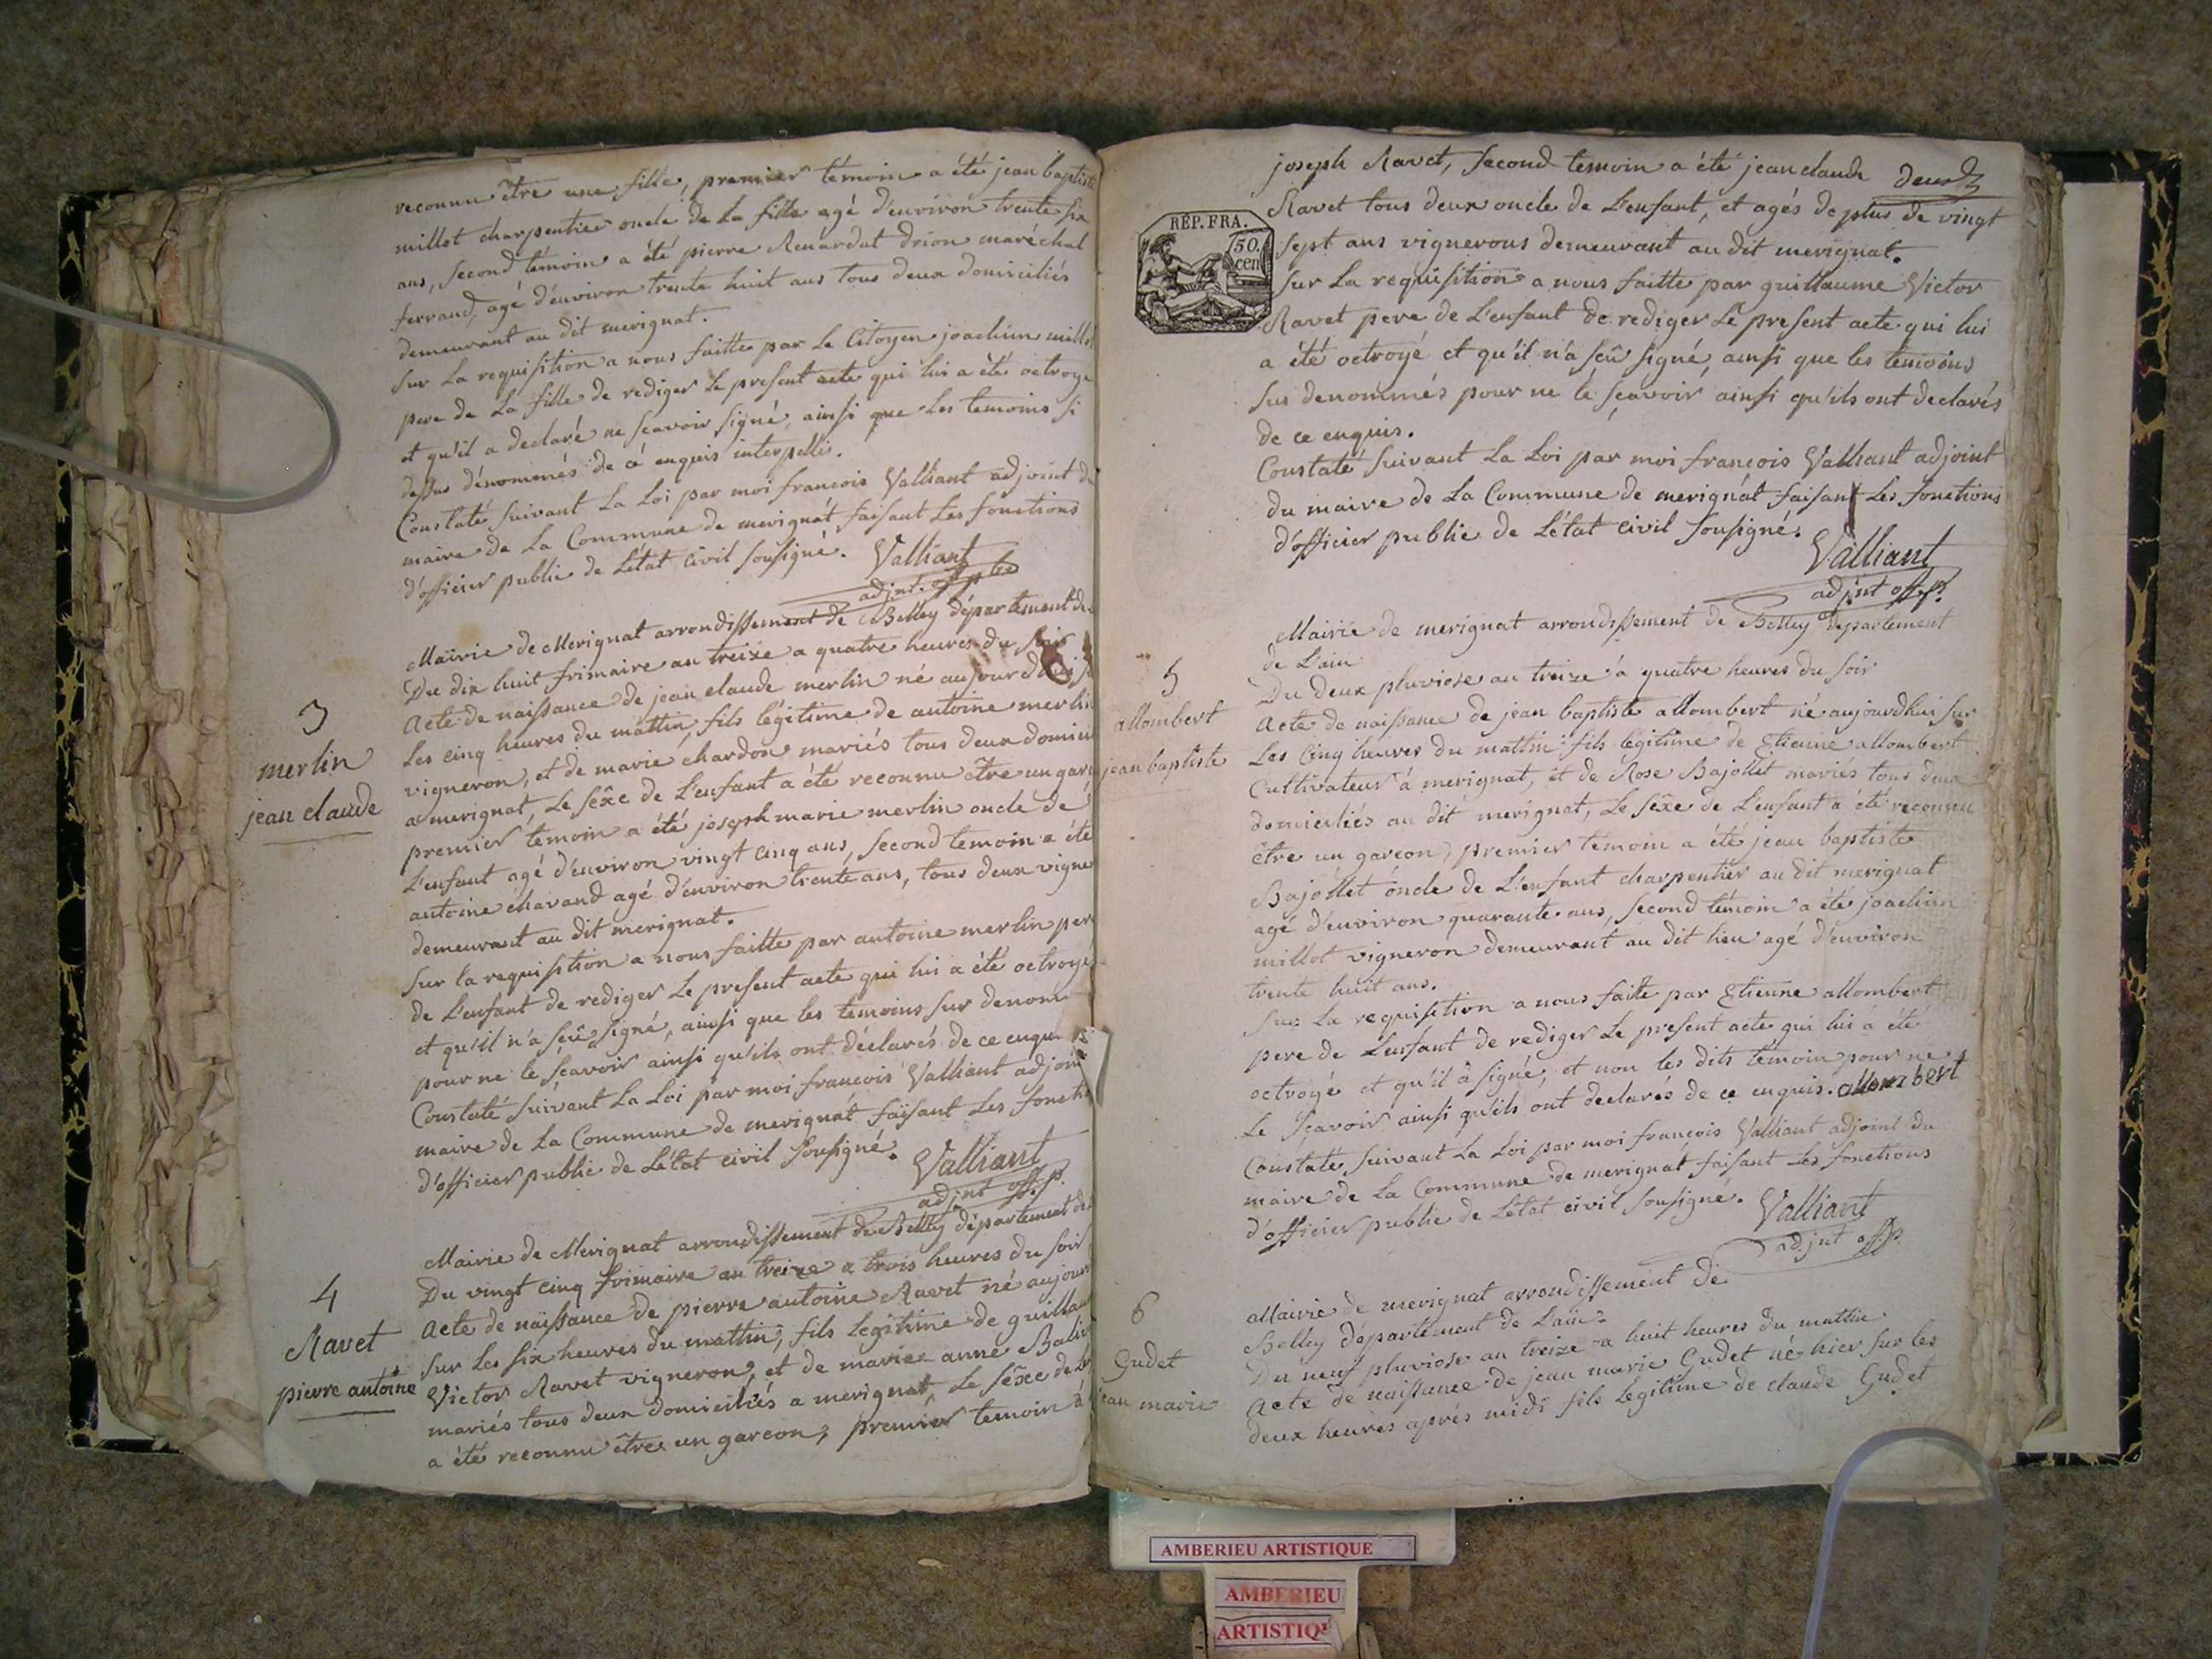 reconnu être une fille, premier témoin a été jean baptiste
millot charpentier oncle de La fille agé d'environ trente six
ans, second témoin a été pierre Renardat drion maréchal
ferrand, agé d'environ trente huit ans tous deux domiciliés
demeurant au dit merignat.
Sur La requisition a nous faitte par Le Citoyen joachim millot
pere de La fille de rediger Le present acte qui lui a été octroyé
et qu'il a declaré ne sçavoir signé, ainsi que Les temoins si
dessus dénommés de ce enquis interpellés.
Constaté suivant La Loi par moi francois Valliant adjoint du
maire de La Commune de merignat faisant Les fonctions
d'officier public de L'état Civil soussigné. Valliant
adjnt. off p
Mairie de Merignat arrondissement de Belley département de
Du dix huit frimaire an treize a quatre heures du soir
3
merlin
jean claude
Acte de naissance de jean claude merlin né aujourd'hui
Les cinq heures du mattin, fils légitime de antoine merlin
vigneron, et de marie chardon mariés tous deux domici
a merignat, Le sêxe de L'enfant a été reconnu être un garc
premier temoin a été joseph marie merlin oncle de
L'enfant agé d'environ vingt cinq ans, second temoin a été
antoine chavand agé d'environ trente ans, tous deux vigne
demeurant au dit merignat.
Sur la requisition a nous faitte par antoine merlin per
de L'enfant de rediger Le present acte qui lui a été octroyé
et qu'il n'a sçû signé, ainsi que les temoins sur denom
pour ne le sçavoir ainsi qu'ils ont déclarés de ce enqu
Constaté suivant La Loi par moi francois Valliant adjoin
maire de La Commune de merignat faisant Les foncti
d'officier public de L'état civil soussigné. Valliant
adjnt off. p.
Mairie de Merignat arrondissement de Belley département de
Du vingt cinq frimaire an treize a trois heures du soir
4
Ravet
pierre antoine
Acte de naissance de pierre antoine Ravet né aujour
sur Les six heures du mattin, fils Legitime de guillau
Victor Ravet vigneron, et de marie anne
mariés tous deux domiciliés a merignat, Le sêxe de
a été reconnu être un garcon, premier temoin a
joseph Ravet, second temoin a été jean claude
RÉP. FRA.
50.
cen
Ravet tous deux oncle de L'enfant, et agés de plus de vingt
sept ans vignerons demeurant au dit merignat.
Sur La requisition a nous faitte par guillaume Victor
Ravet pere de L'enfant de rediger Le present acte qui lui
a été octroyé et qu'il n'a sçû signé, ainsi que les temoins
sus denommés pour ne le sçavoir ainsi qu'ils ont declarés
de ce enquis.
Constaté suivant La Loi par moi francois Valliant adjoint
du maire de La Commune de merignat faisant Les fonctions
d'officier public de L'état civil soussigné. Valliant
adjnt off. p.
Mairie de merignat arrondissement de Belley departement
de L'ain
Du deux pluviose an treize a quatre heures du soir
5
allombert
jean baptiste
Acte de naissance de jean baptiste allombert né aujourdhui sur
Les Cinq heures du mattin fils legitime de Etienne allombert
Cultivateur à merignat, et de Rose Bajollet mariés tous deux
domiciliés au dit merignat, Le sêxe de L'enfant a été reconnu
être un garcon, premier temoin a été jean baptiste
Bajollet oncle de L'enfant charpentier au dit merignat
agé d'environ quarante ans, second témoin a été joachim
millot vigneron demeurant au dit lieu agé d'environ
trente huit ans.
Sur La requisition a nous faite par Etienne allombert
pere de L'enfant de rediger Le present acte qui lui a été
octroyé et qu'il a signé, et non les dits témoin pour ne
Le sçavoir ainsi qu'ils ont declarés de ce enquis. allombert
Constaté suivant La Loi par moi francois Valliant adjoint du
maire de La Commune de merignat faisant Les fonctions
d'officier public de L'état civil soussigné. Valliant
adjnt off.p.
Mairie de merignat arrondissement de
Belley département de L'ain
Du neuf pluviose an treize a huit heures du mattin
6
Gudet
jean marie
Acte de naissance de jean marie Gudet né hier sur les
deux heures aprés midi fils legitime de claude Gudet
AMBERIEU ARTISTIQUE
AMBERIEU
ARTISTIQ